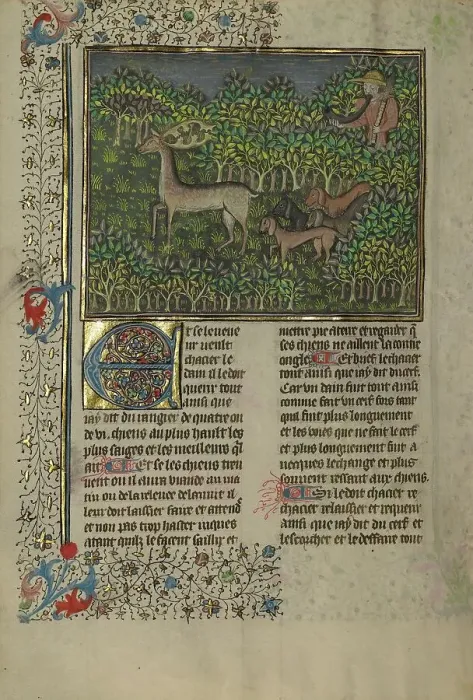 Et se le veneur
ur veult
chacier le
dain il le doit
querir tout
ainsi que
iay dit du rangier de quatre ou
de vi. chiens au plus hault les
plus saiges et les meilleurs ql
ait Et se les chiens treu
uent ou il aura viande au ma
tin ou de la releuee delanuit il
leur doit laissier faire et attend
et non pas trop haster iusques
atant quilz le facent saillir et
mettre pie a terre et regarder q
ses chiens ne aillent la contre
ongle Et brief le chacier
tout ainsi que iay dit du cerf.
Car vn dain fuit tout ainsi
comme fait vn cerf fors tant
quil fuit plus longuement
et les voies que ne fait le cerf
et plus longuement fuit a
necques le change et plus
souuent ressant aux chiens.
Si le doit chacier re
chacier relaissier et requerir
ainsi que iay dit du cerf et
lescorcher et le deffaire tout